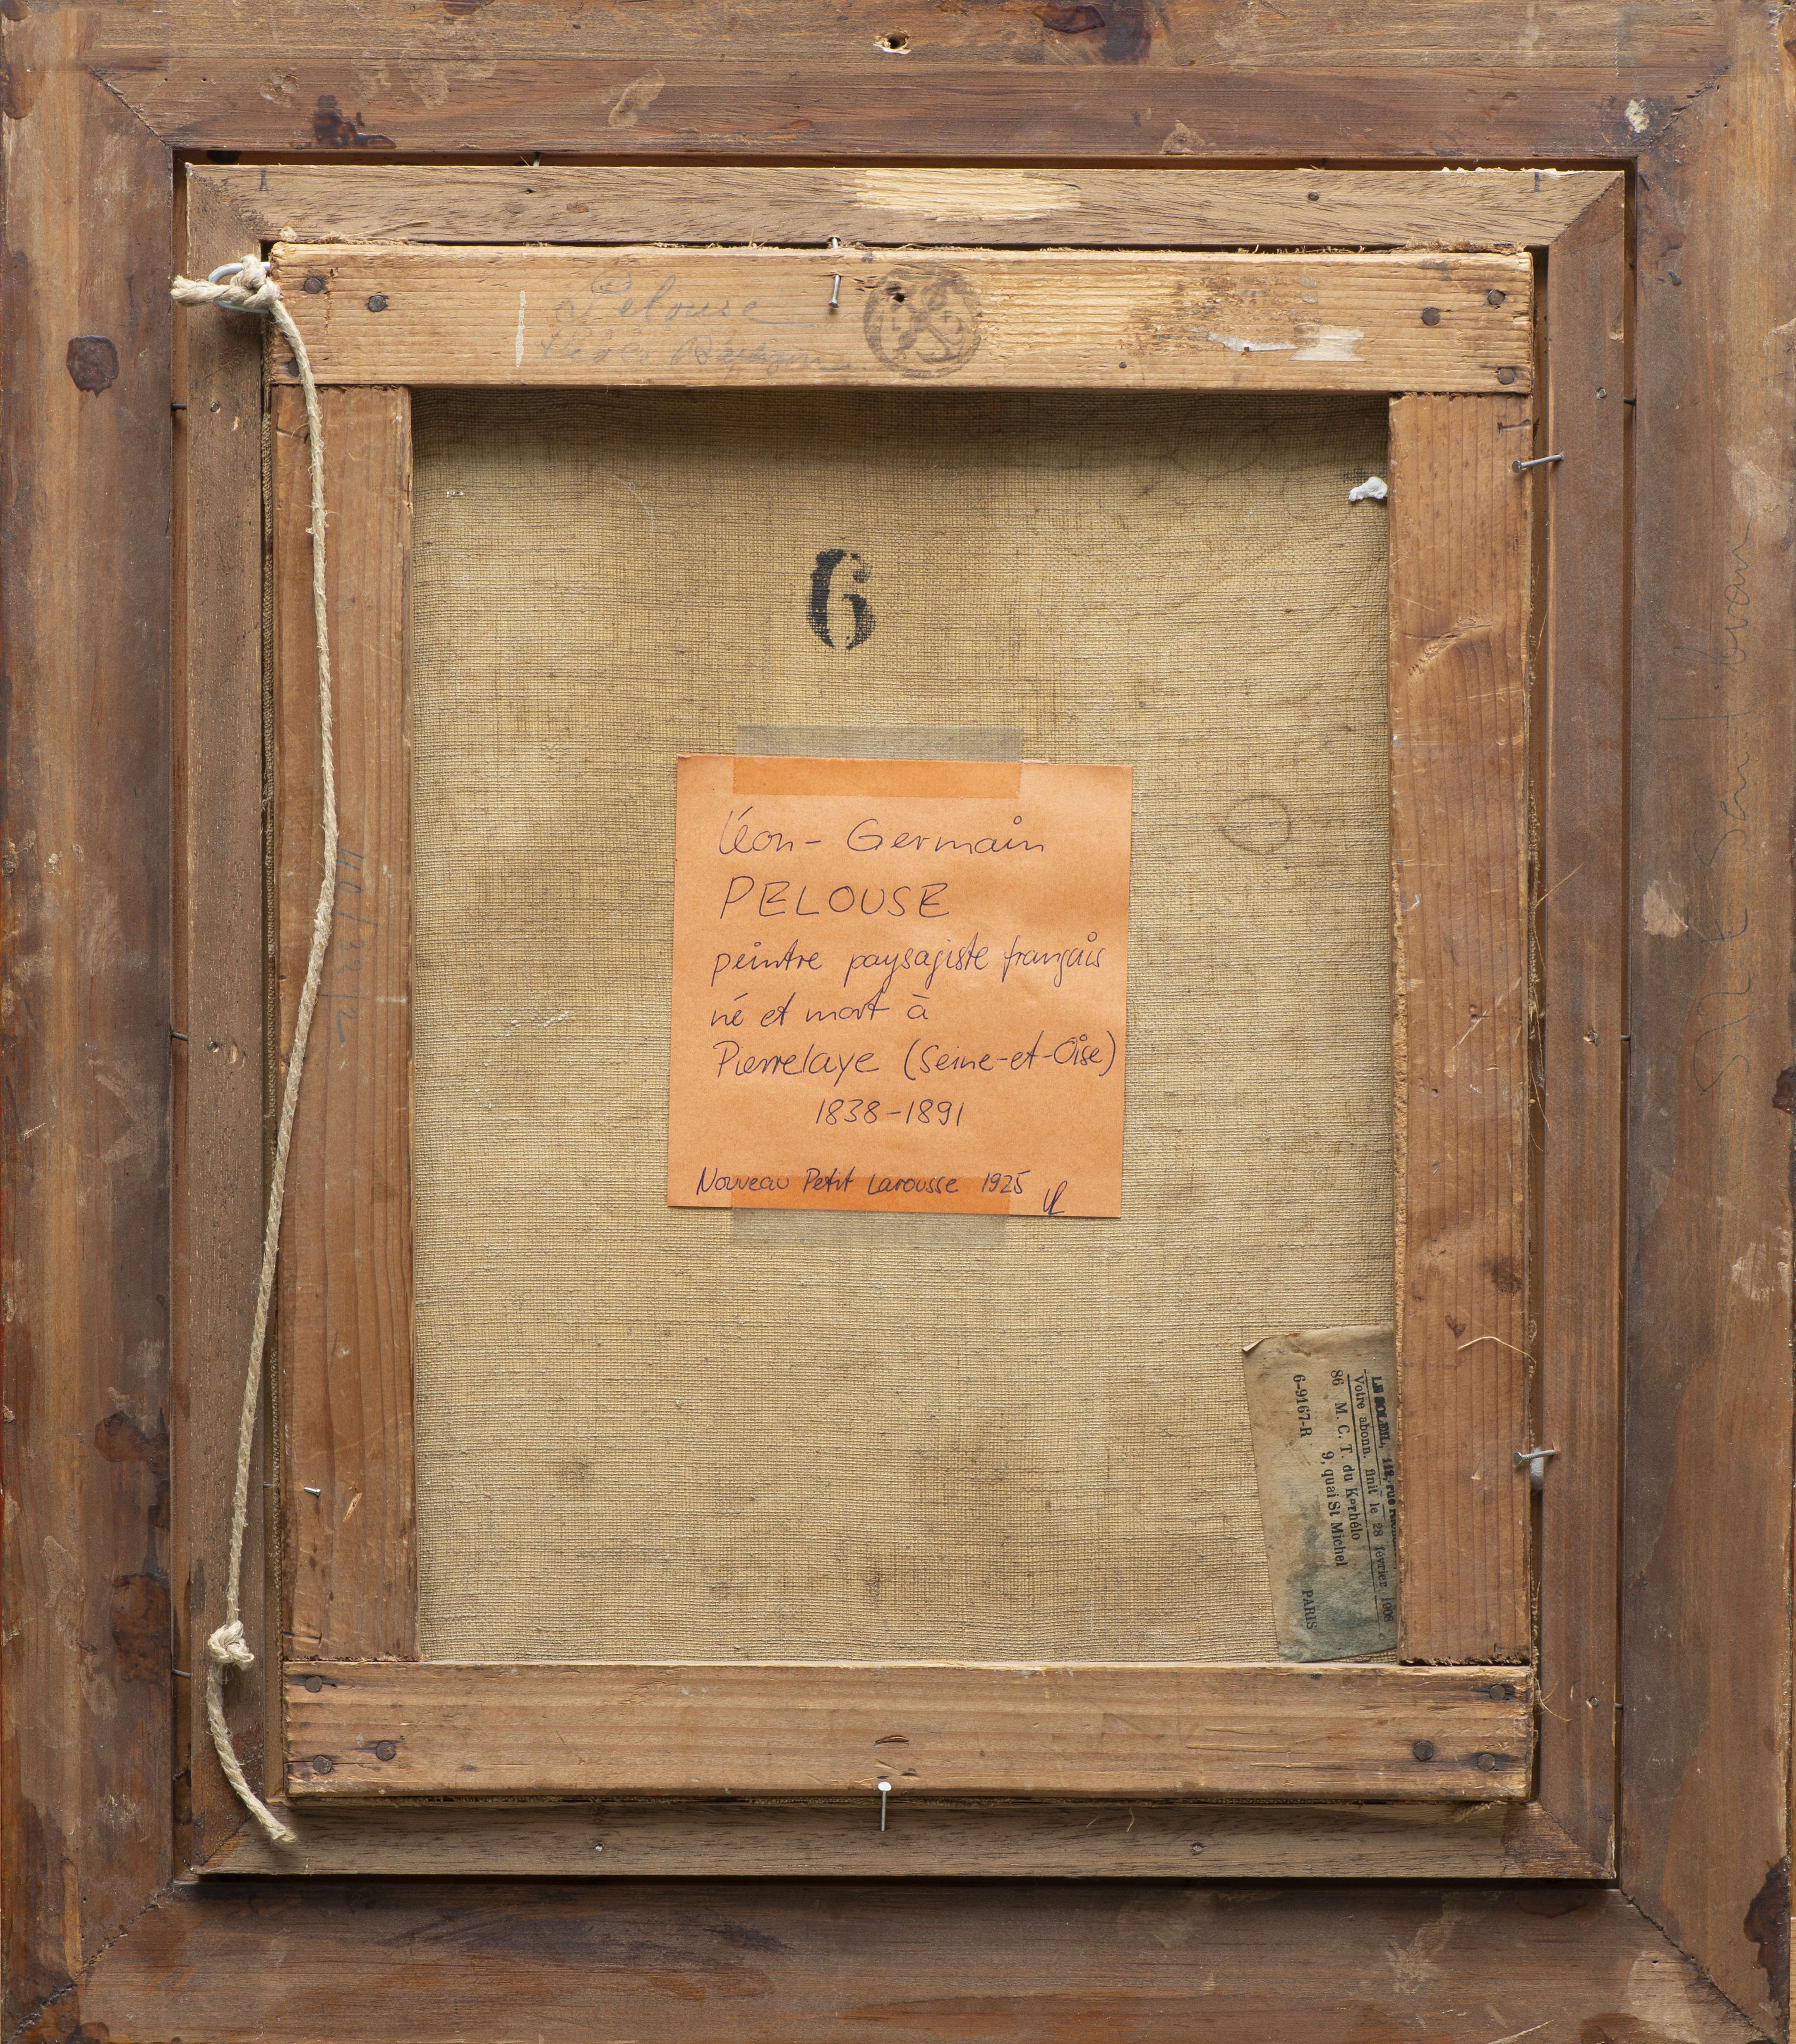 Pelouse
6
Léon-Germain
PELOUSE
peintre paysagiste français
né et mort à
Pierrelaye (Seine-et-Oise)
1838-1891
Nouveau Petit Larousse 1925
LE SOLEIL, 112, rue
Votre abonn. finit le 28 février 1908
86 M. C. T. du Kerhélo
9, quai St Michel
6-9167-R PARIS